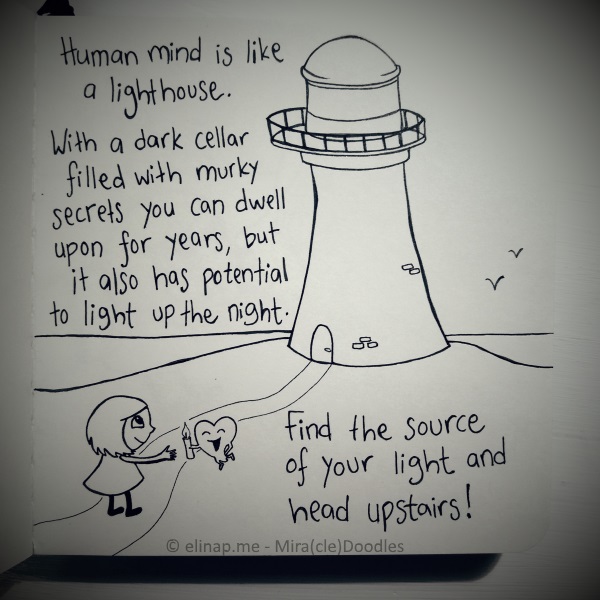 Human mind is like
a lighthouse.
With a dark cellar
filled with murky
secrets you can dwell
upon for years, but
it also has potential
to light up the night.
Find the source
of your light and
head upstairs!
© elinap.me - Mira(cle)Doodles